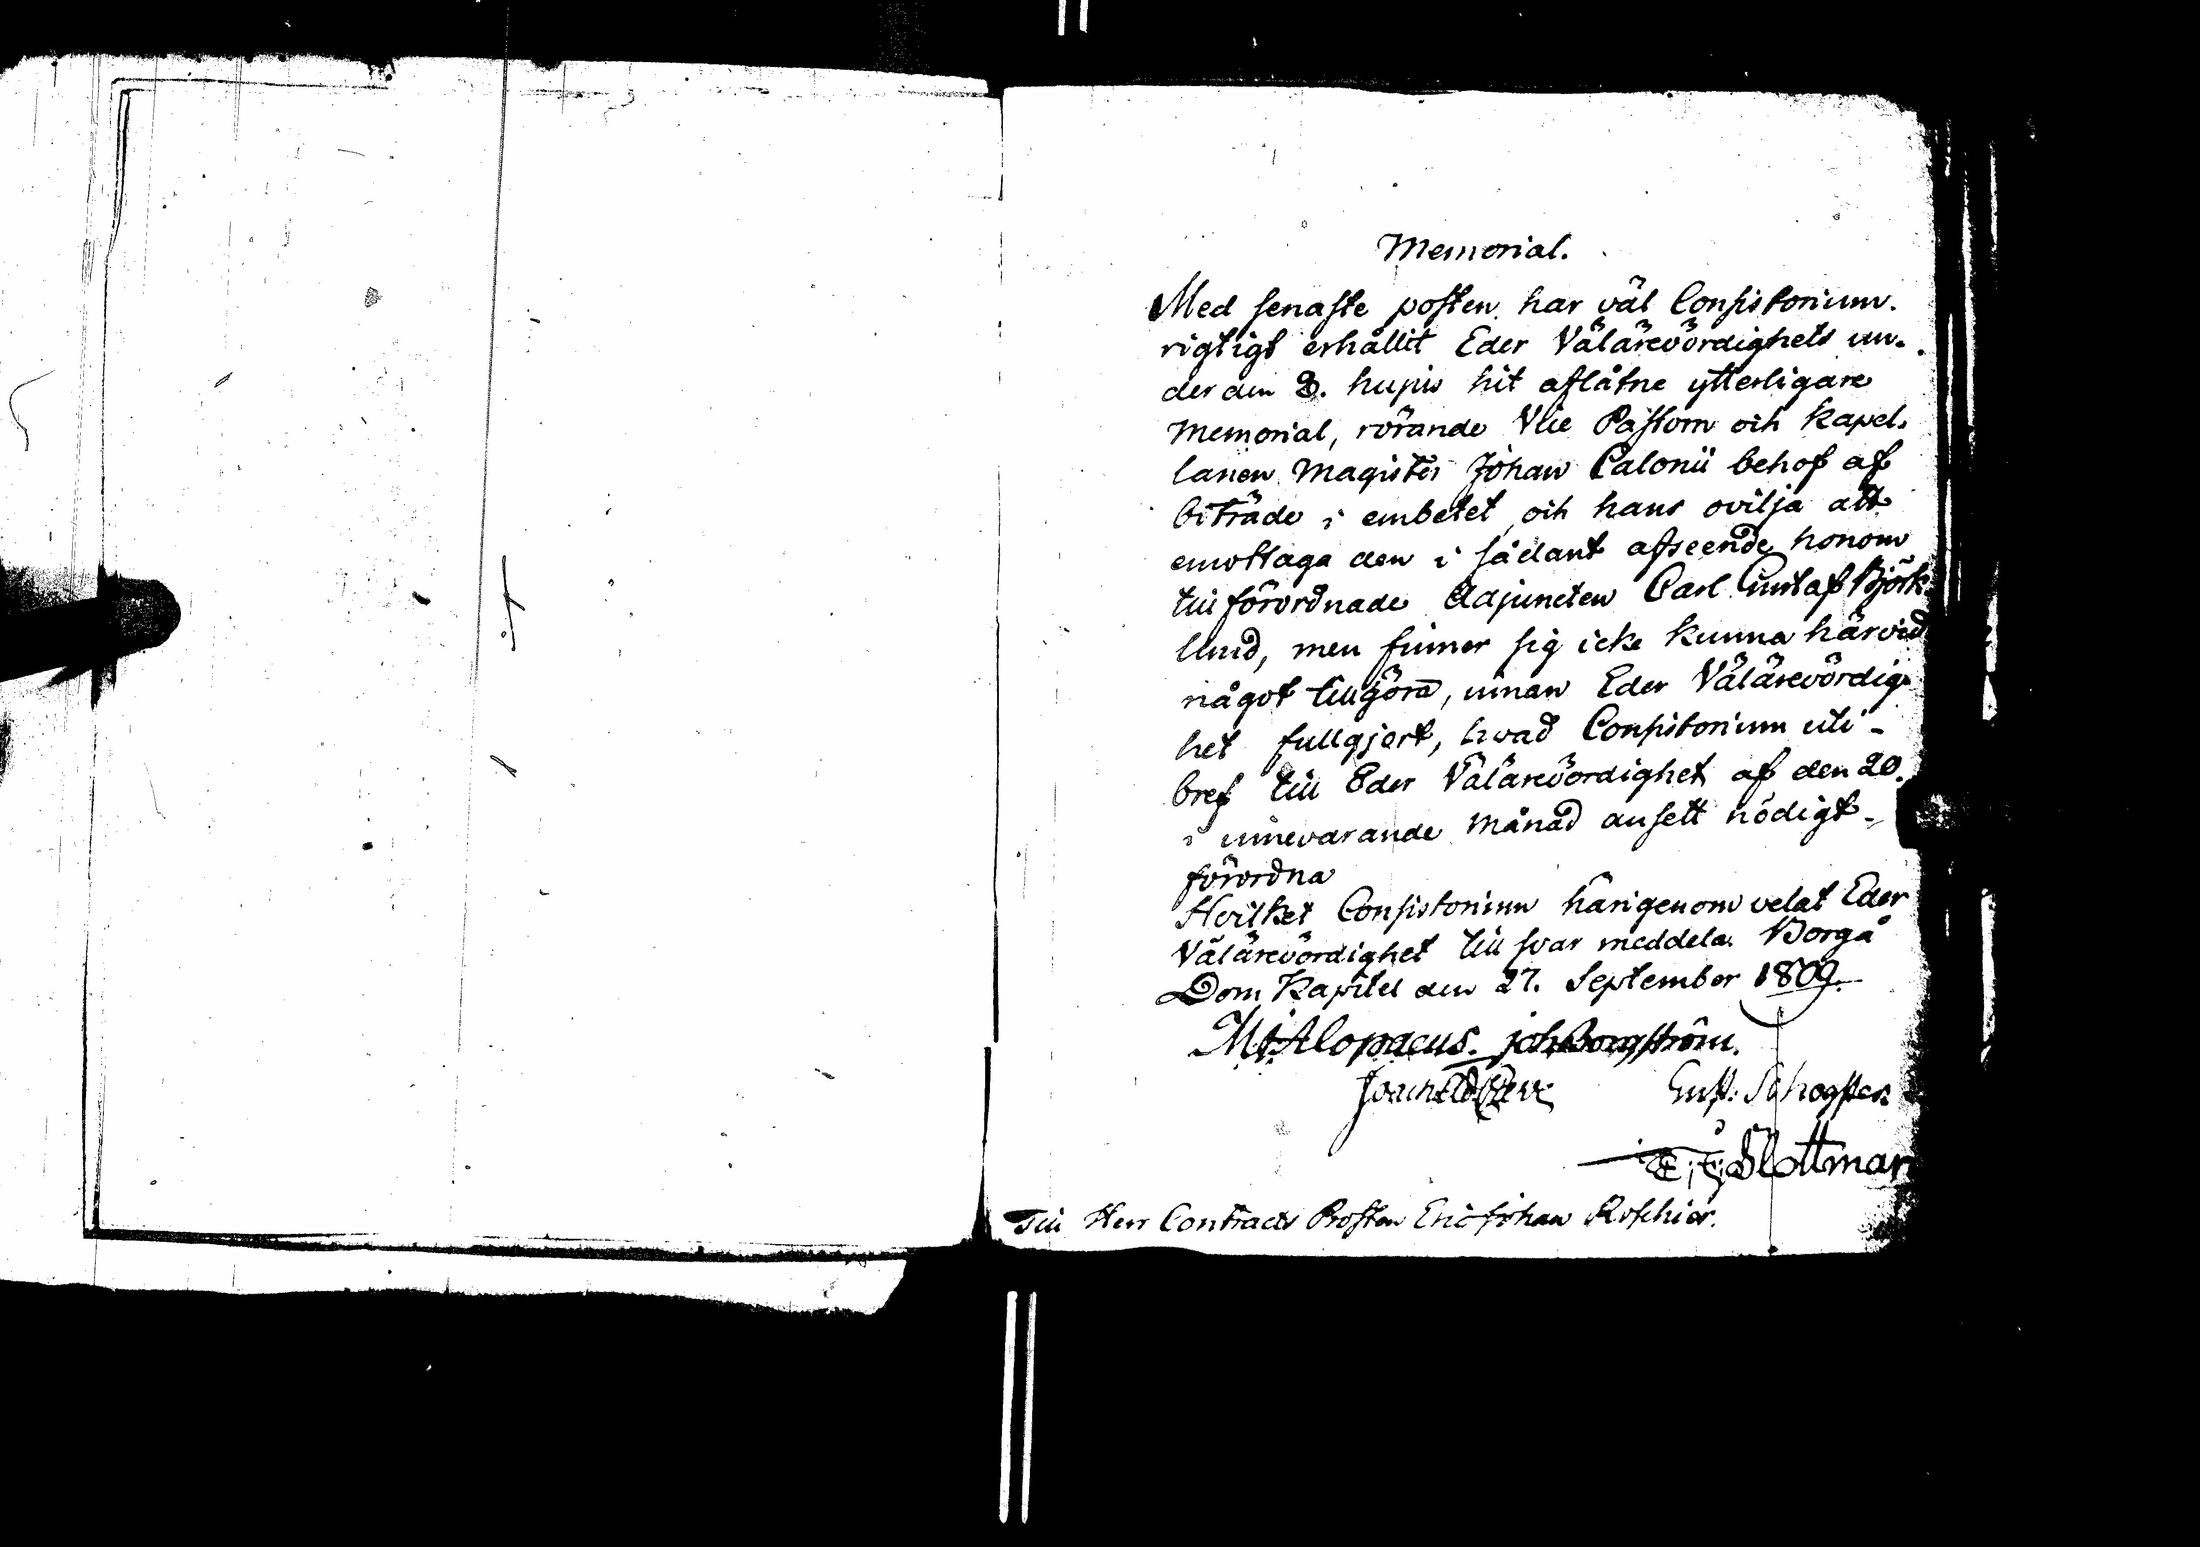 Memorial.
Med senaste posten har väl Consistorium
rigtigt erhållit Eder Välärevördighets un-
der den 8. hujus hit aflåtne ytterligare
Memorial, rörande Vice Pastorn och Kapel-
lanen Magister Johan Calonii behof af
biträde i embetet och hans ovilja att
emottaga den i sådant afseende honom
tillförordnade Adjuncten Carl Gustaf Björk-
lund, men finner sig icke kunna härvid
något tillgöra, innan Eder Välärevördig-
het fullgjort, hvad Consistorium uti
bref till Eder Välärevördighet af den 20.
i innevarande Månad ansett nödigt
förordna
Hvilket Consistorium härigenom velat Eder
Välärevördighet till svar meddela. Borgå
Dom Kapitel den 27. September 1809.
M: Alopaeus. Joh. Borgström.
Gust: Schogster
Slottman
Till Herr Contracts Prosten Eric Johan Roschier.